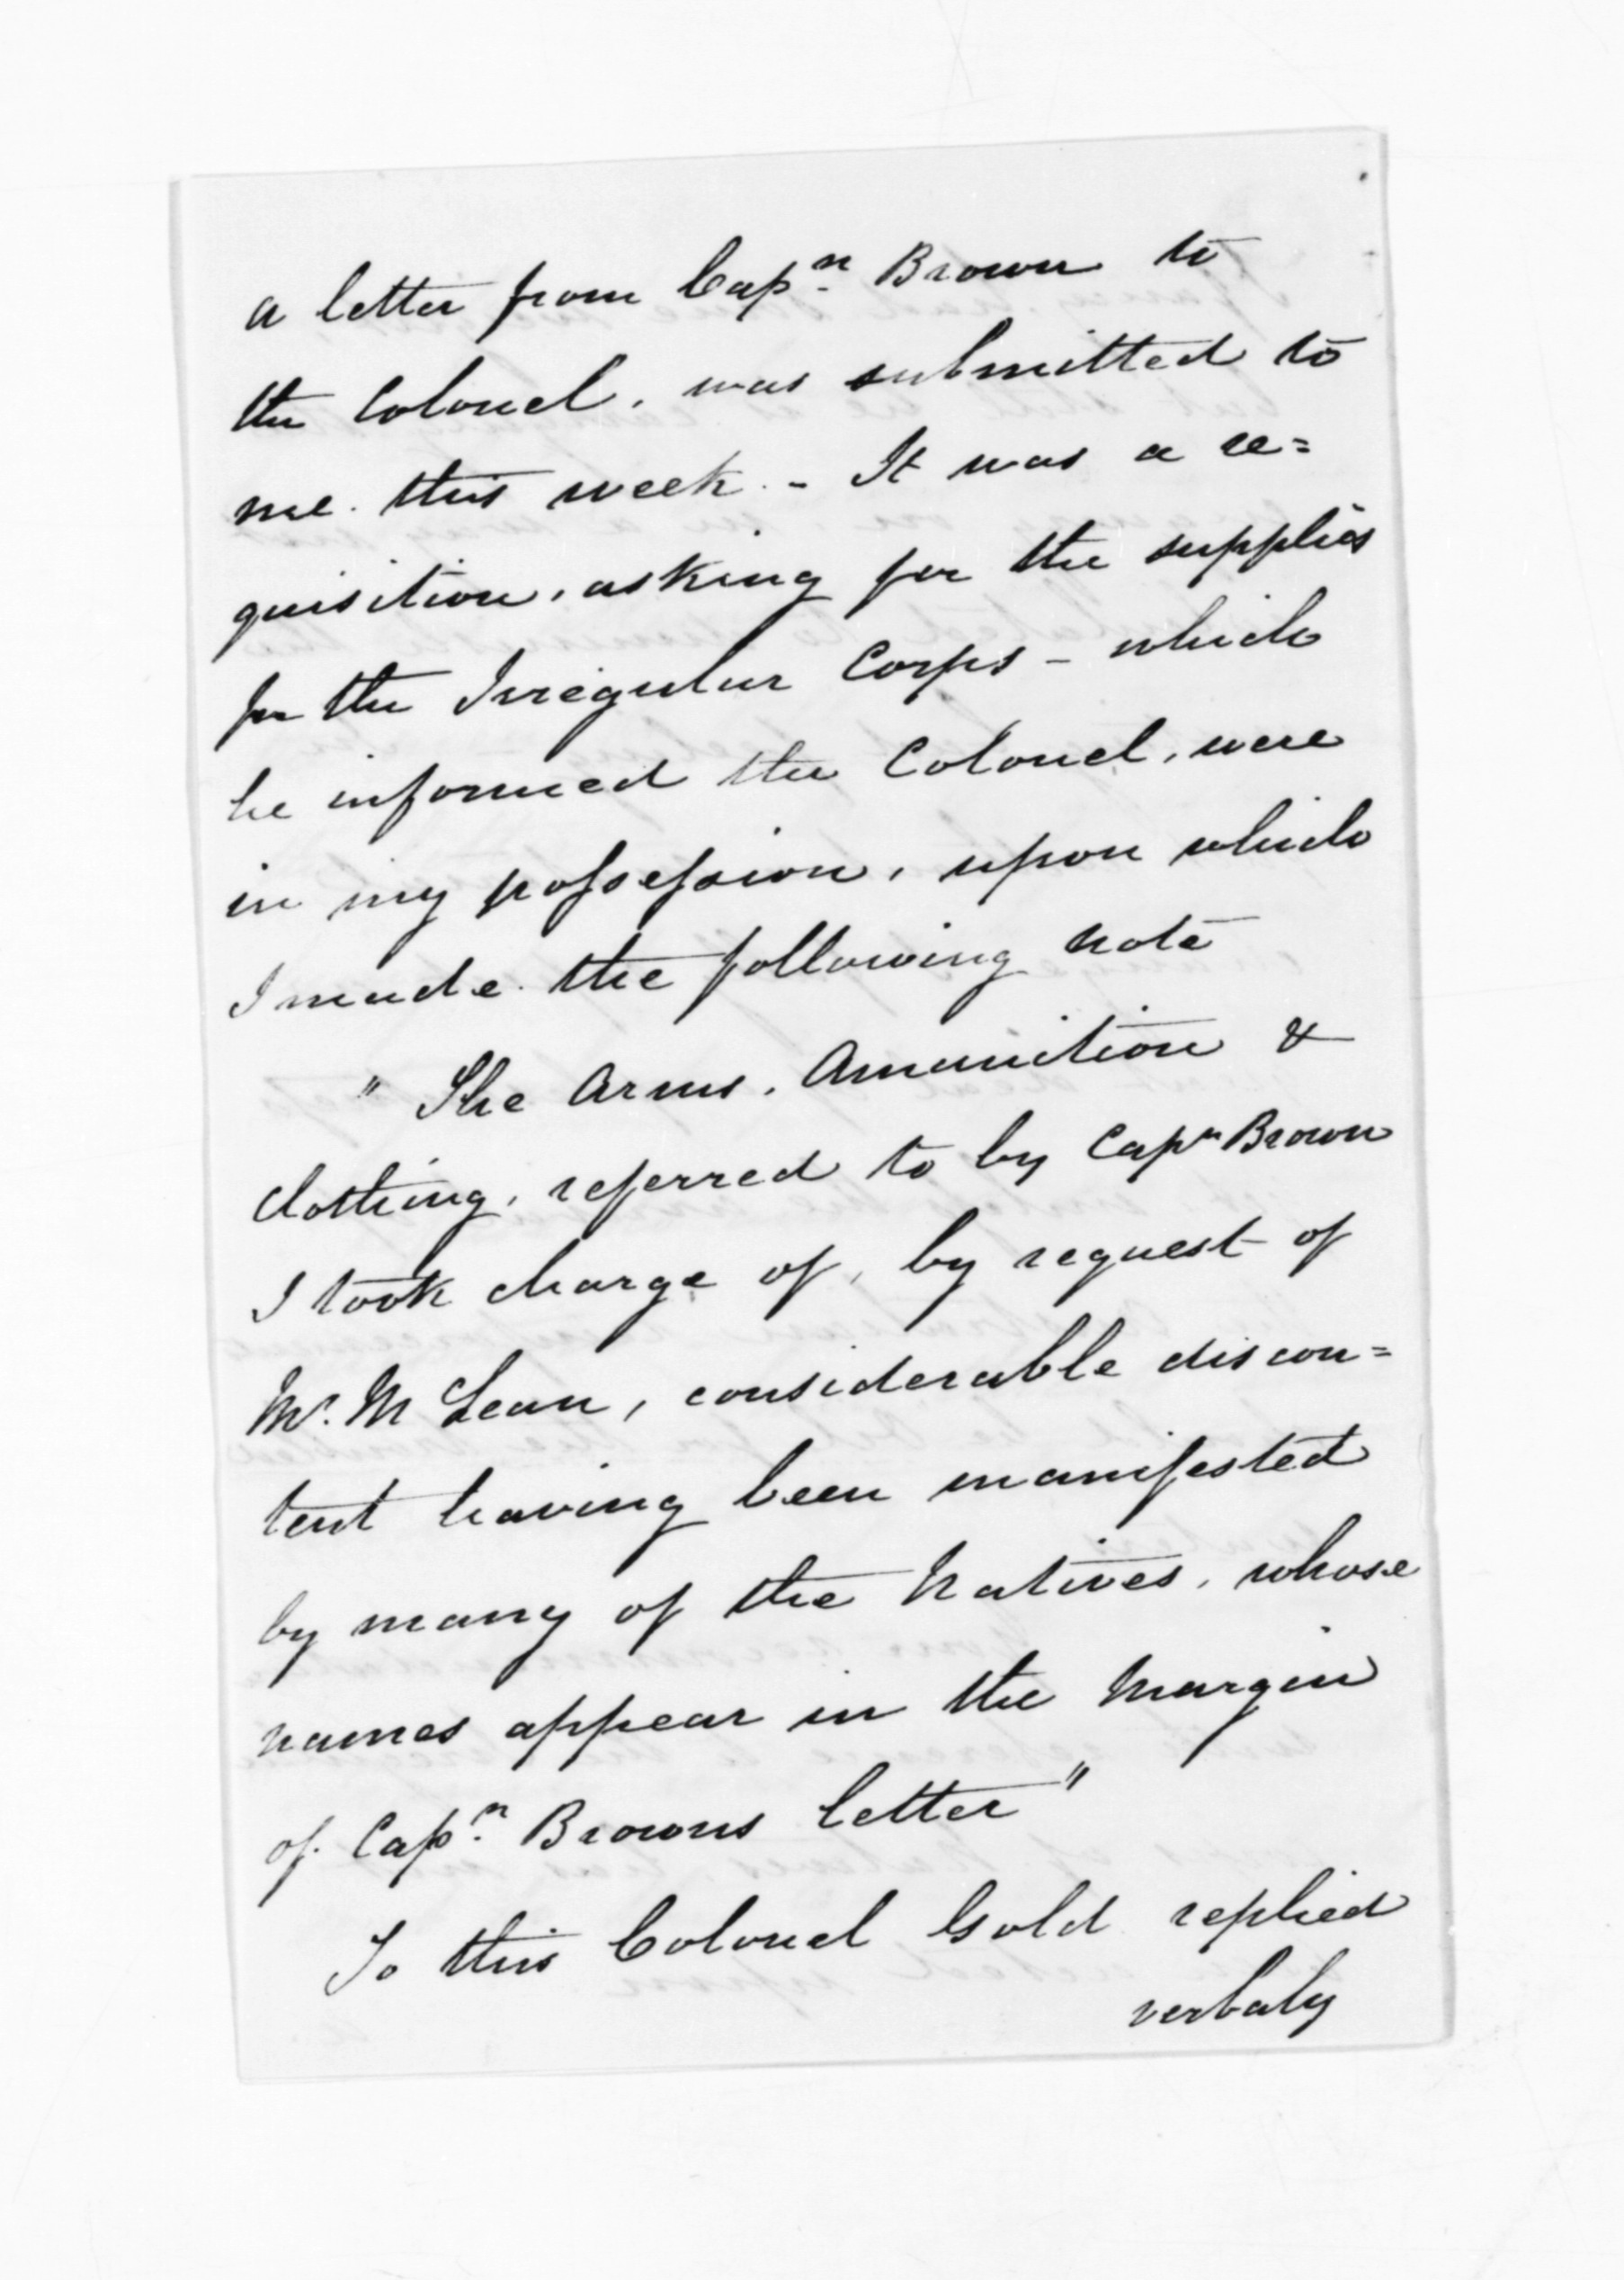 a letter from Capn. Brown to
the Colonel, was submitted to
me. this week. - It was a re=
quisition, asking for the supplies
for the Irregular Corps - which
he informed the Colonel, were
in my possession, upon which
I made the following note
" The Arms, Amunition &
Clothing, referred to by Capn Brown
I took charge of, by request of
Mr. McLean, considerable discon=
tent having been manifested
by many of the Natives, whose
names appear in the Margin
of. Capn. Browns letter"
To this Colonel Gold replied
verbaly